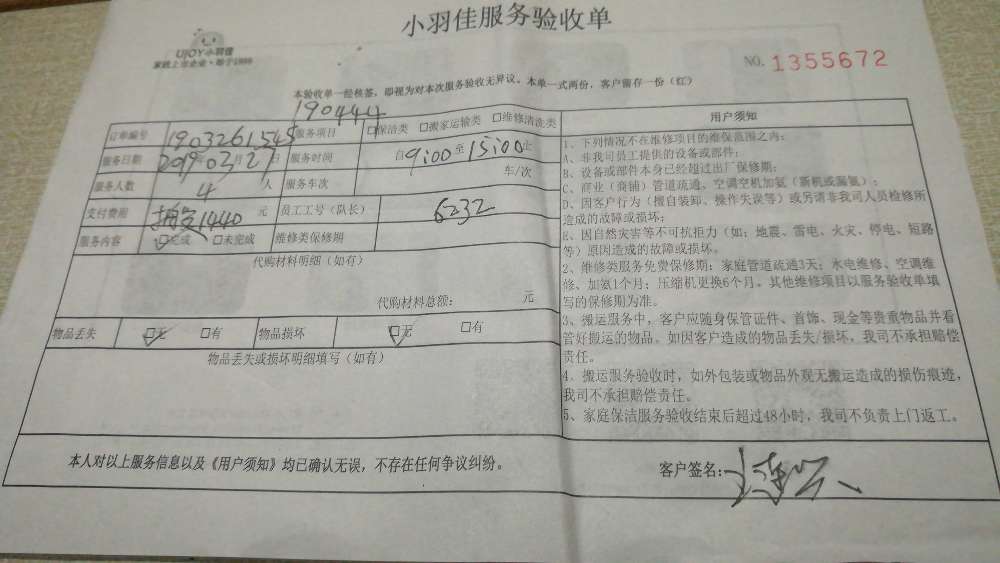 小羽佳服务验收单
UJOY小羽佳
家政上市企业·始于1999
NO. 1355672
本验收单一经核签，即视为对本次服务验收无异议。本单一式两份，客户留存一份（红）
190444
订单编号 1903261545 服务项目 □保洁类 □搬家运输类 □维修清洗类
服务日期 2019年03月27日 服务时间 自9:00至15:00止
服务人数 4 人 服务车次 车/次
支付费用 1440 元 员工工号（队长） 6232
服务内容 □完成 □未完成 维修类保修期
代购材料明细（如有）
代购材料总额： 元
物品丢失 □无 □有 物品损坏 □无 □有
物品丢失或损坏明细填写（如有）
用户须知
1、下列情况不在维修项目的维保范围之内：
A、非我司员工提供的设备或部件；
B、设备或部件本身已经超过出厂保修期；
C、商业（商铺）管道疏通，空调空机加氨（新机或漏氨）；
D、因客户行为（擅自装卸、操作失误等）或另请非我司人员检修所
造成的故障或损坏；
E、因自然灾害等不可抗拒力（如：地震、雷电、火灾、停电、短路
等）原因造成的故障或损坏。
2、维修类服务免费保修期：家庭管道疏通3天；水电维修、空调维
修、加氨1个月；压缩机更换6个月。其他维修项目以服务验收单填
写的保修期为准。
3、搬运服务中，客户应随身保管证件、首饰、现金等贵重物品并看
管好搬运的物品。如因客户造成的物品丢失/损坏，我司不承担赔偿
责任。
4、搬运服务验收时，如外包装或物品外观无搬运造成的损伤痕迹，
我司不承担赔偿责任。
5、家庭保洁服务验收结束后超过48小时，我司不负责上门返工。
本人对以上服务信息以及《用户须知》均已确认无误，不存在任何争议纠纷。
客户签名：